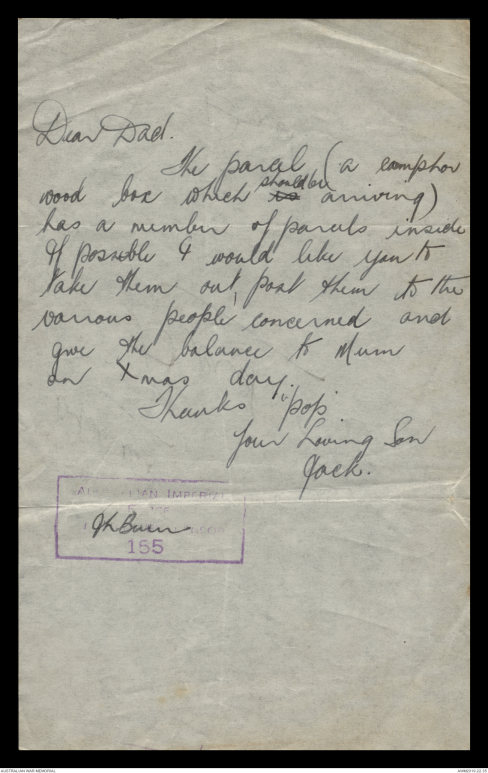 Dear Dad.
The parcel (a camphor
wood box which should be arriving)
has a number of parcels inside
If possible I would like you to
take them out, post them to the
various people concerned and
give the balance to Mum
on Xmas day.
Thanks "pop"
Your Loving Son
Jack.
IMPERIAL
155
AUSTRALIAN WAR MEMORIAL